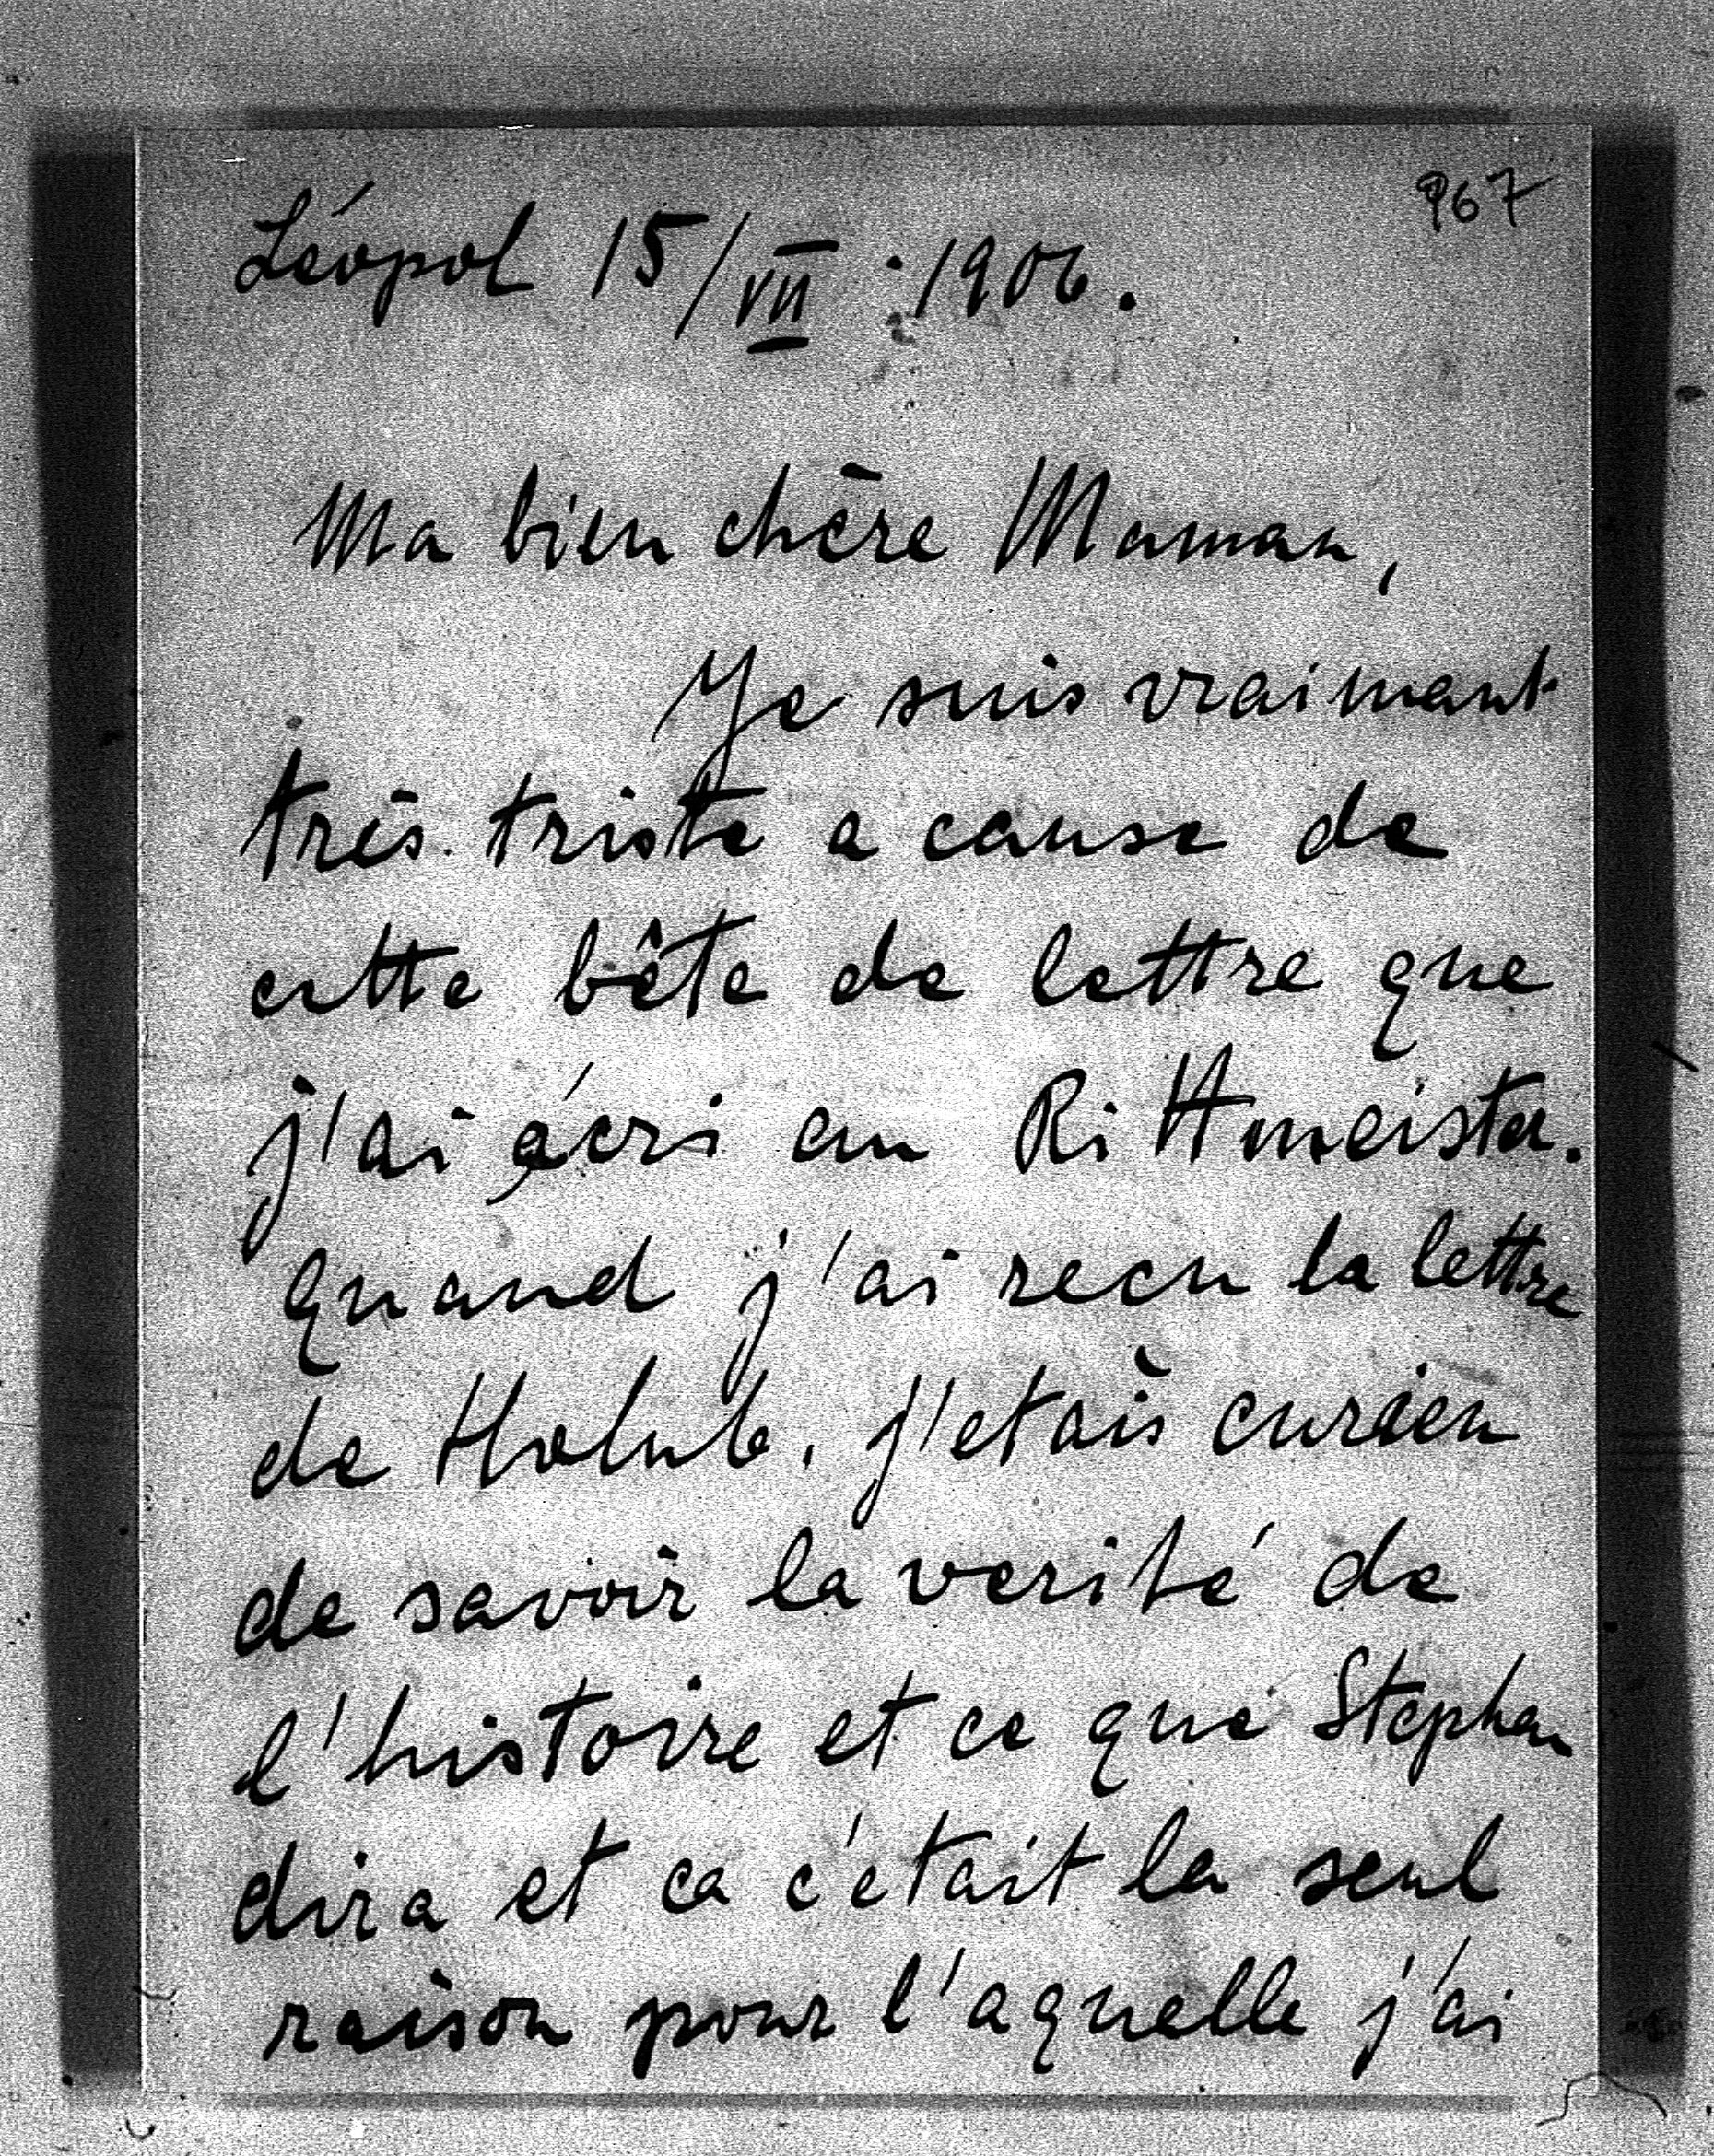 967
Léopol 15/VII . 1906.
Ma bien chère Maman,
Je suis vraimant
très triste a cause de
cette bête de lettre que
j'ai écri au Rittmeister.
quand j'ai recu la lettre
de Holub. j'etais curieu
de savoir la verité de
l'histoire et ce que Stephan
dira et ca c'était la seul
raison pour l'aquelle j'ai